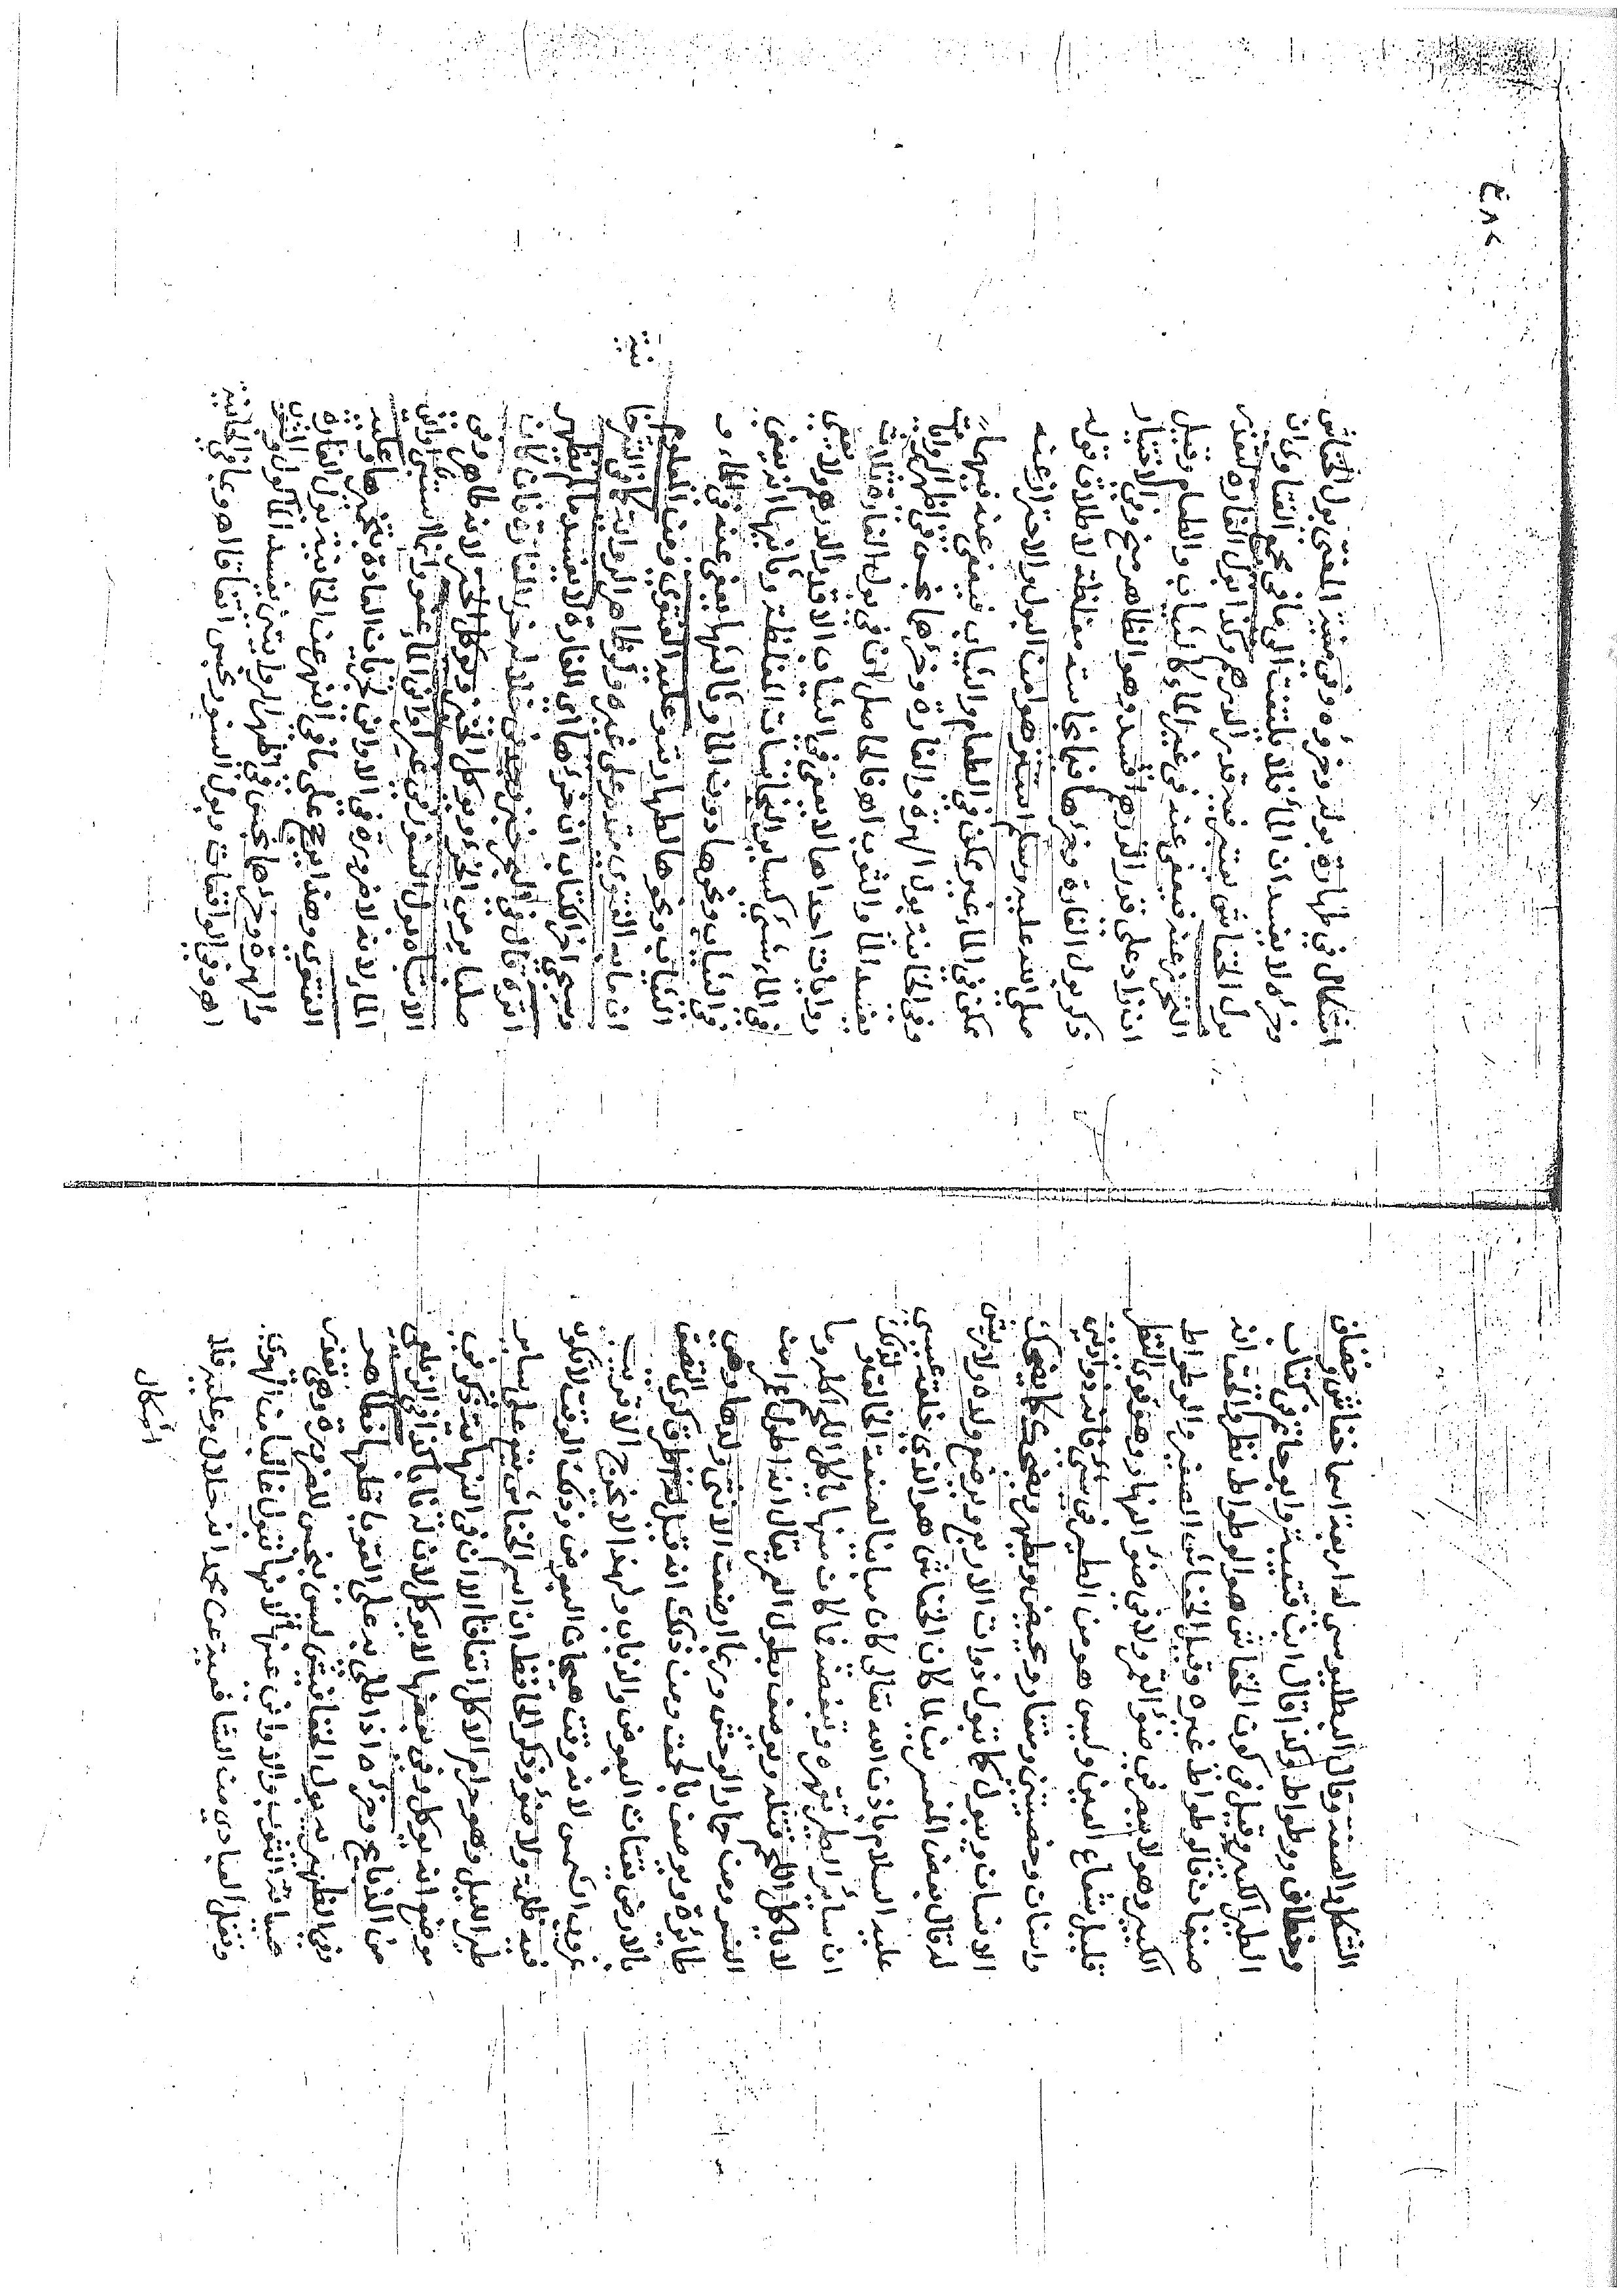 الشكل والصفة وقال البطليوسي له اربعة اسما خفاش وخشاف
وخطاف ووطواط وكذا قال ابن قتيبة وابو حاتم في كتاب
الطير الكبير وقيل في كون الخفاش هو الوطواط نظر والحق انه
صنفان فالوطواط غيره وقيل الخفاش الصغير والوطواط
الكبير وهو لا يبصر في ضوء القمر ولا في ضوء النهار وهو قوي النظر
قليل شعاع العين وليس هو من الطير في شي فانه ذو اذنين
واسنان وخصيتين ومنقار ويحيض ويطهر ويضحك كما يضحك
الانسان ويبول كما تبول ذوات الاربع ويرضع ولده ولا ريش
له قال بعض المفسرين لما كان الخفاش هو الذي خلقه عيسى
عليه السلام باذن الله تعالى كان مباينا لصنعة الخالق
ان سائر الطير تقهره وتبغضه فما كان منها ياكل اللحم اكله وما
لا ياكل اللحم قتله ويوصف بطول العمر يقال انه اطول عمرا من
النسر ومن حمار الوحش وربما ارضعت الانثى ولدها وهي
طائرة ويوصف بالحمق ومن ذلك انه قيل له اطرق كرى التصق
بالارض يقتات البعوض والذباب ولهذا لا يخرج الا قريب
غروب الشمس لانه وقت هيجان البعوض وذلك الوقت لا يكون
فيه ظلمة ولا ضوء وذكر الحافظ ان اسم الخفاش يقع على سائر
طير الليل وهو حرام الاكل اتفاقا الا ان في النهاية ذكر في
موضع انه يؤكل وفي بعضها لا يؤكل لان له نابا كذا في الزيلعي
من الذبائح وخرؤه اذا طلي به على القوبا قلعها فطاهر
وفي الظهيرية بول الخفافيش ليس بنجس للضرورة وهي تعذر
صيانة الثوب والاواني عنها لانها تبول غالبا من الهوى
ونقل العبادي من الشافعية عن محمد انه حلال وعليه فلا
اشكال
اشكال في طهارة بوله وخرؤه وفي منية المفتي بول الخفاش
وخرؤه لا يفسدان الماء فلا يلتفت الى ما في مجمع الفتاوى ان
بول الخفاش يعتبر فيه قدر الدرهم وكذا بول الفارة لتعذر
التحرز عنه فيعفى عنه في غير الماء كالثياب والطعام وقيل
ان زاد على قدر الدرهم افسد وهو الظاهر منح وفي الاختيار
ذكر بول الفارة وخرءها فنجاسته مغلظة لاطلاق قوله
صلى الله عليه وسلم استنزهوا من البول والاحتراز عنه
ممكن في الماء غير ممكن في الطعام والثياب فيعفى عنه فيهما اهـ
وفي الخانية بول الهرة والفارة وخرءها نجس في اظهر الروايات
يفسد الماء والثوب اهـ فالحاصل ان في بول الفارة ثلاث
روايات احداها لا يعفى في الثياب الا قدر الدرهم ولا يعفى
في الماء بشئ كسائر النجاسات المغلظة وثانيها انه يعفى
في الثياب ونحوها دون الماء وثالثها يعفى عنه في الماء و
الثياب ونحوها لطهارته وعليه الفتوى ومن المعلوم
ان ما به الفتوى مقدم على غيره ولو ظاهر الرواية كما في
وسيجي اخر الكتاب ان خرءها اي الفارة لا يفسد ما لم يظهر
اثره قال في
صلبا يرمى الخرء ويؤكل الخبز لانه طاهر وفي
الاشباه بول السنور في غير اواني الماء عفو وانما استثنى اواني
الماء لانه لا ضرورة في الاواني لجريان العادة بتخميرها وعليه
الفتوى وهذا يرجح على ما في النهر عن الخانية بول الفارة
والهرة وخرءها نجس في اظهر الروايتين يفسد الماكول والثوب
اهـ وفي الواقعات وبول السنور نجس اتفاقا اهـ وعبارة الخانية